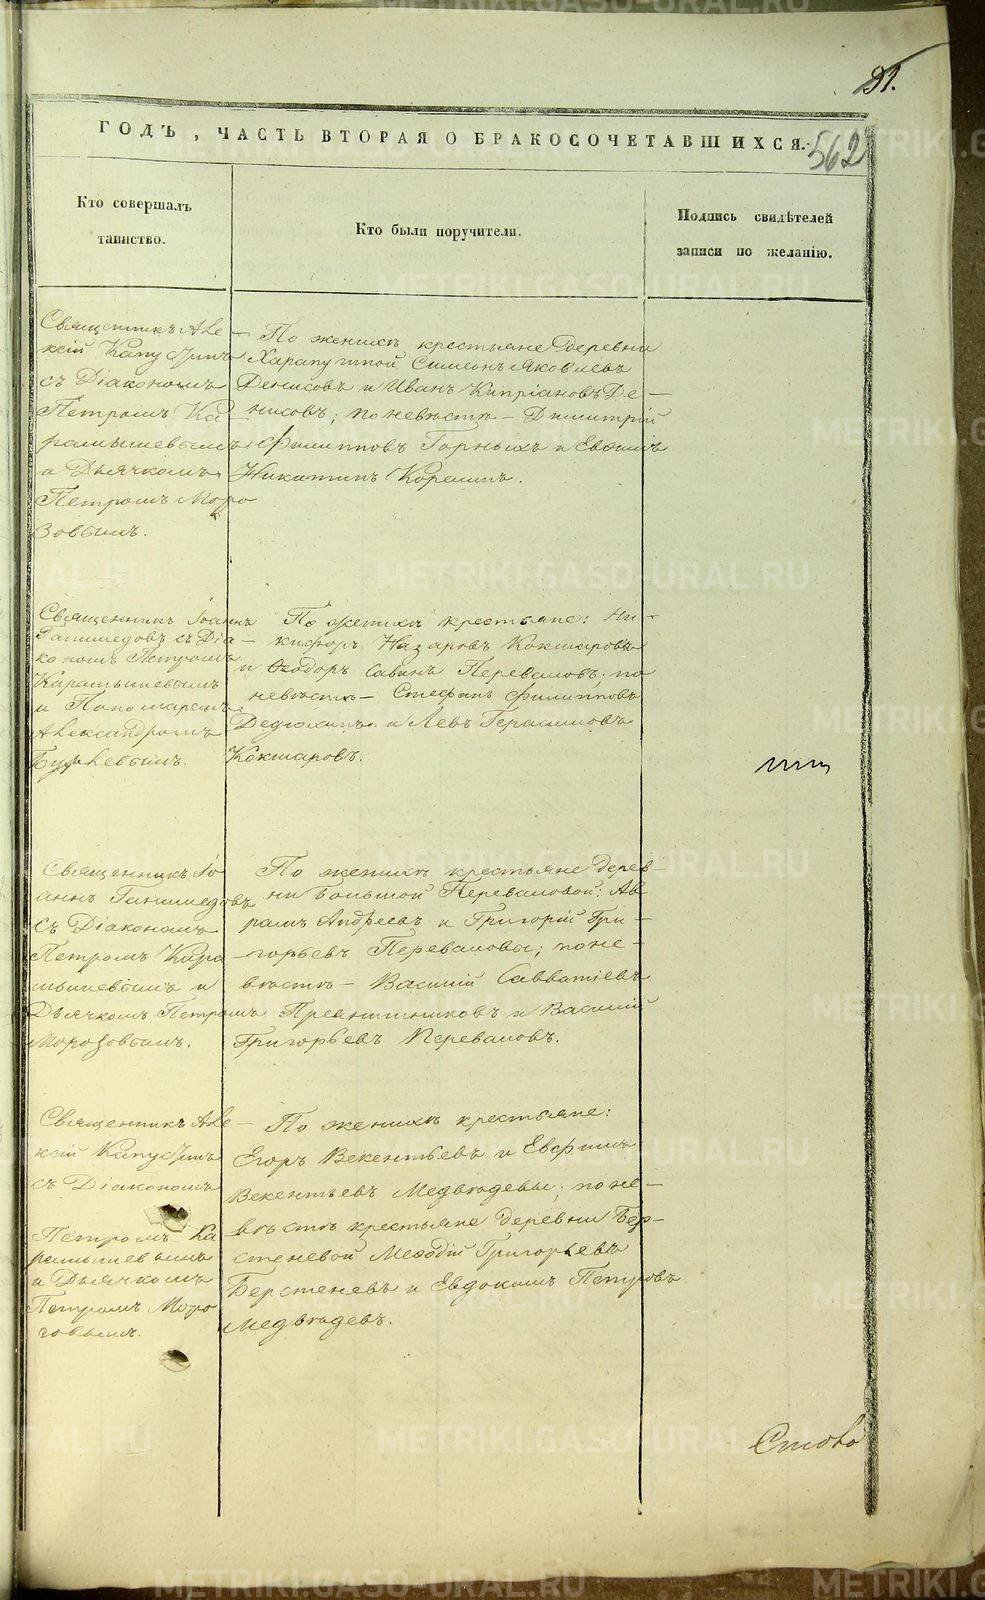 91.
ГОДЪ, ЧАСТЬ ВТОРАЯ О БРАКОСОЧЕТАВШИХСЯ.
562
Кто совершалъ
таинство.
Кто были поручители.
Подпись свидѣтелей
записи по желанію.
Священникъ Але-
ксій Капустинъ
съ Діакономъ
Петромъ Ка
рамышевымъ
и Дьячкомъ
Петромъ Моро
зовымъ.
По женихѣ крестьяне деревни
Харапутной Симеонъ Яковлевъ
Денисовъ и Иванъ Кипріановъ Де-
нисовъ; по невѣстѣ - Димитрій
Филипповъ Горныхъ и Евфимій
Никитинъ Корелинъ.
Священникъ Іоаннъ
Ганимедовъ съ Діа-
кономъ Петромъ
Карамышевымъ
и Пономаремъ
Александромъ
По женихѣ крестьяне: Ни-
кифоръ Назаровъ Кокшаровъ
и Ѳеодоръ Савинъ Переваловъ, по
невѣстѣ - Стефанъ Филипповъ
и Левъ Герасимовъ
Кокшаровъ.
Священникъ Іо
аннъ Ганимедовъ
съ Діакономъ
Петромъ Кара
мышевымъ и
Дьячкомъ Петромъ
Морозовымъ.
По женихѣ крестьяне дерев-
ни Большой Переваловой: Ав
рамъ Андреевъ и Григорій Гри-
горьевъ Переваловы; по не-
вѣстѣ - Василій Савватіевъ
и Василій
Григорьевъ Переваловъ.
Священникъ Але-
ксій Капустинъ
съ Діакономъ
Петромъ Ка
рамышевымъ
и Дьячкомъ
Петромъ Моро
зовымъ.
По женихѣ крестьяне:
Егоръ Векентьевъ и Евфимъ
Векентьевъ Медвѣдевы; по не-
вѣстѣ крестьяне деревни Бер-
стеневой Меѳодій Григорьевъ
Берстеневъ и Евдокимъ Петровъ
Медвѣдевъ.
METRIKI.GASO-URAL.RU